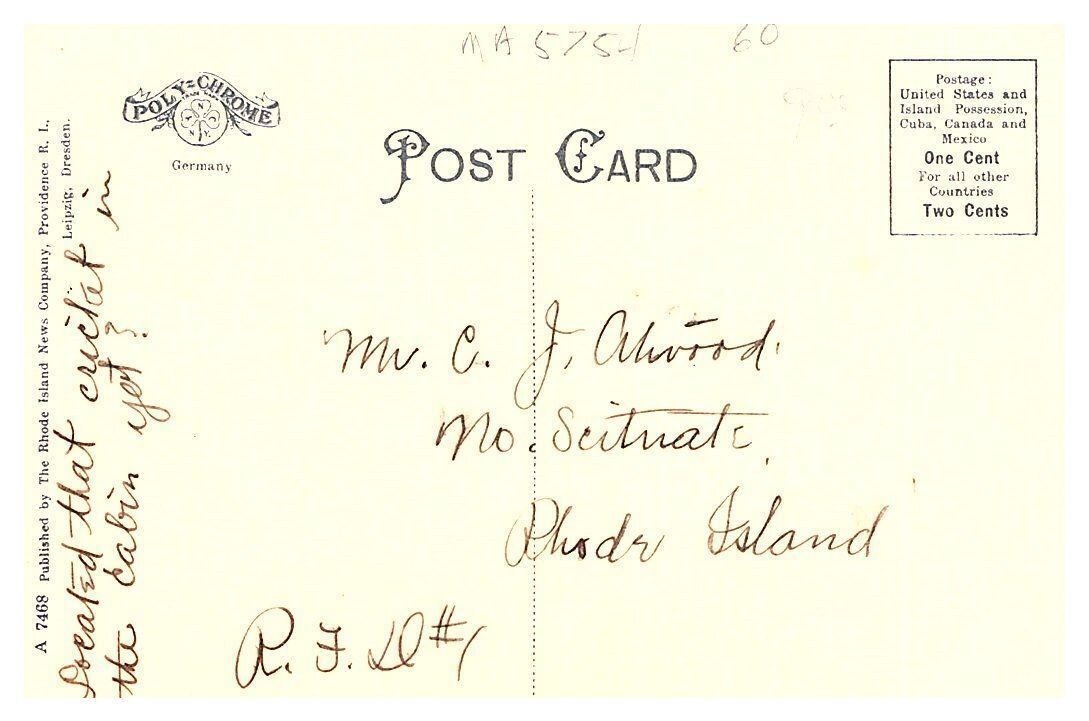 MA 5754 60
POLY-CHROME
Germany
POST CARD
Postage:
United States and
Island Possession,
Cuba, Canada and
Mexico
One Cent
For all other
Countries
Two Cents
A 7468 Published by The Rhode Island News Company, Providence R. I.,
Leipzig, Dresden.
Located that cricket in
the cabin yet?
Mr. C. J. Atwood.
No. Scituate,
Rhode Island
R. F. D #1